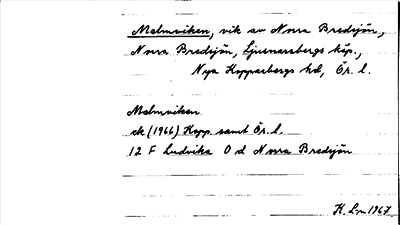 Malmviken, vik av Norra Bredsjön,
Norra Bredsjön, Ljusnarsbergs köp.,
Nya Kopparbergs hd, Ör. l.
Malmviken
ek (1966) Kopp. samt Ör. l.
12 F Ludvika O d Norra Bredsjön
K. Lm 1967